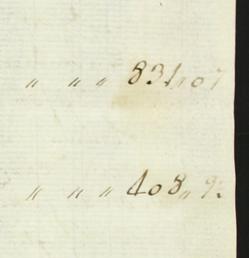 〃 〃 〃 831〃07
〃 〃 〃 408〃9